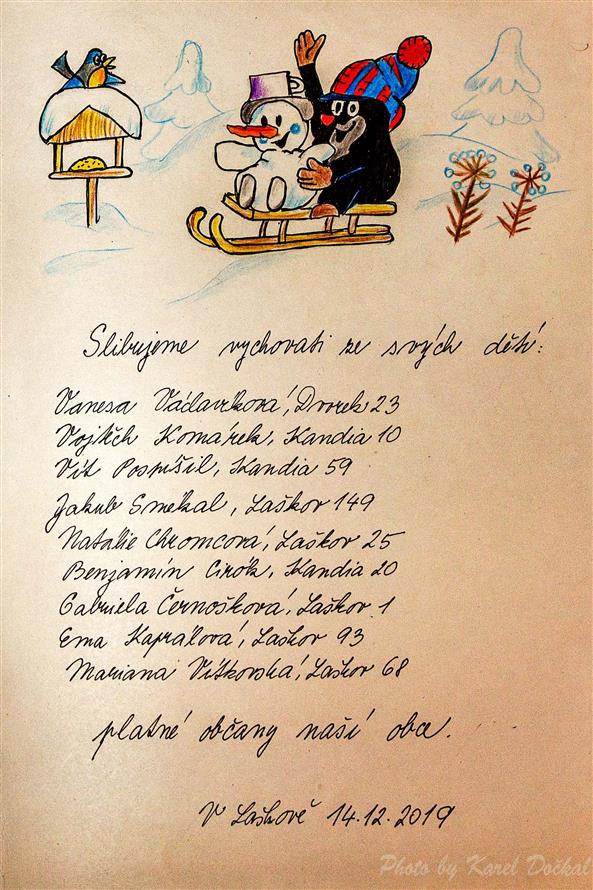 Slibujeme vychovati ze svých dětí:
Vanesa Václavíková, Dvorek 23
Vojtěch Komárek, Kandia 10
Vít Pospíšil, Kandia 59
Jakub Smékal, Laškov 149
Natálie Chromcová, Laškov 25
Benjamín Cirók, Kandia 20
Gabriela Černošková, Laškov 1
Ema Kaprálová, Laškov 93
Mariana Vítkovská, Laškov 68
platné občany naší obce.
V Laškově 14.12.2019
Photo by Karel Dočkal